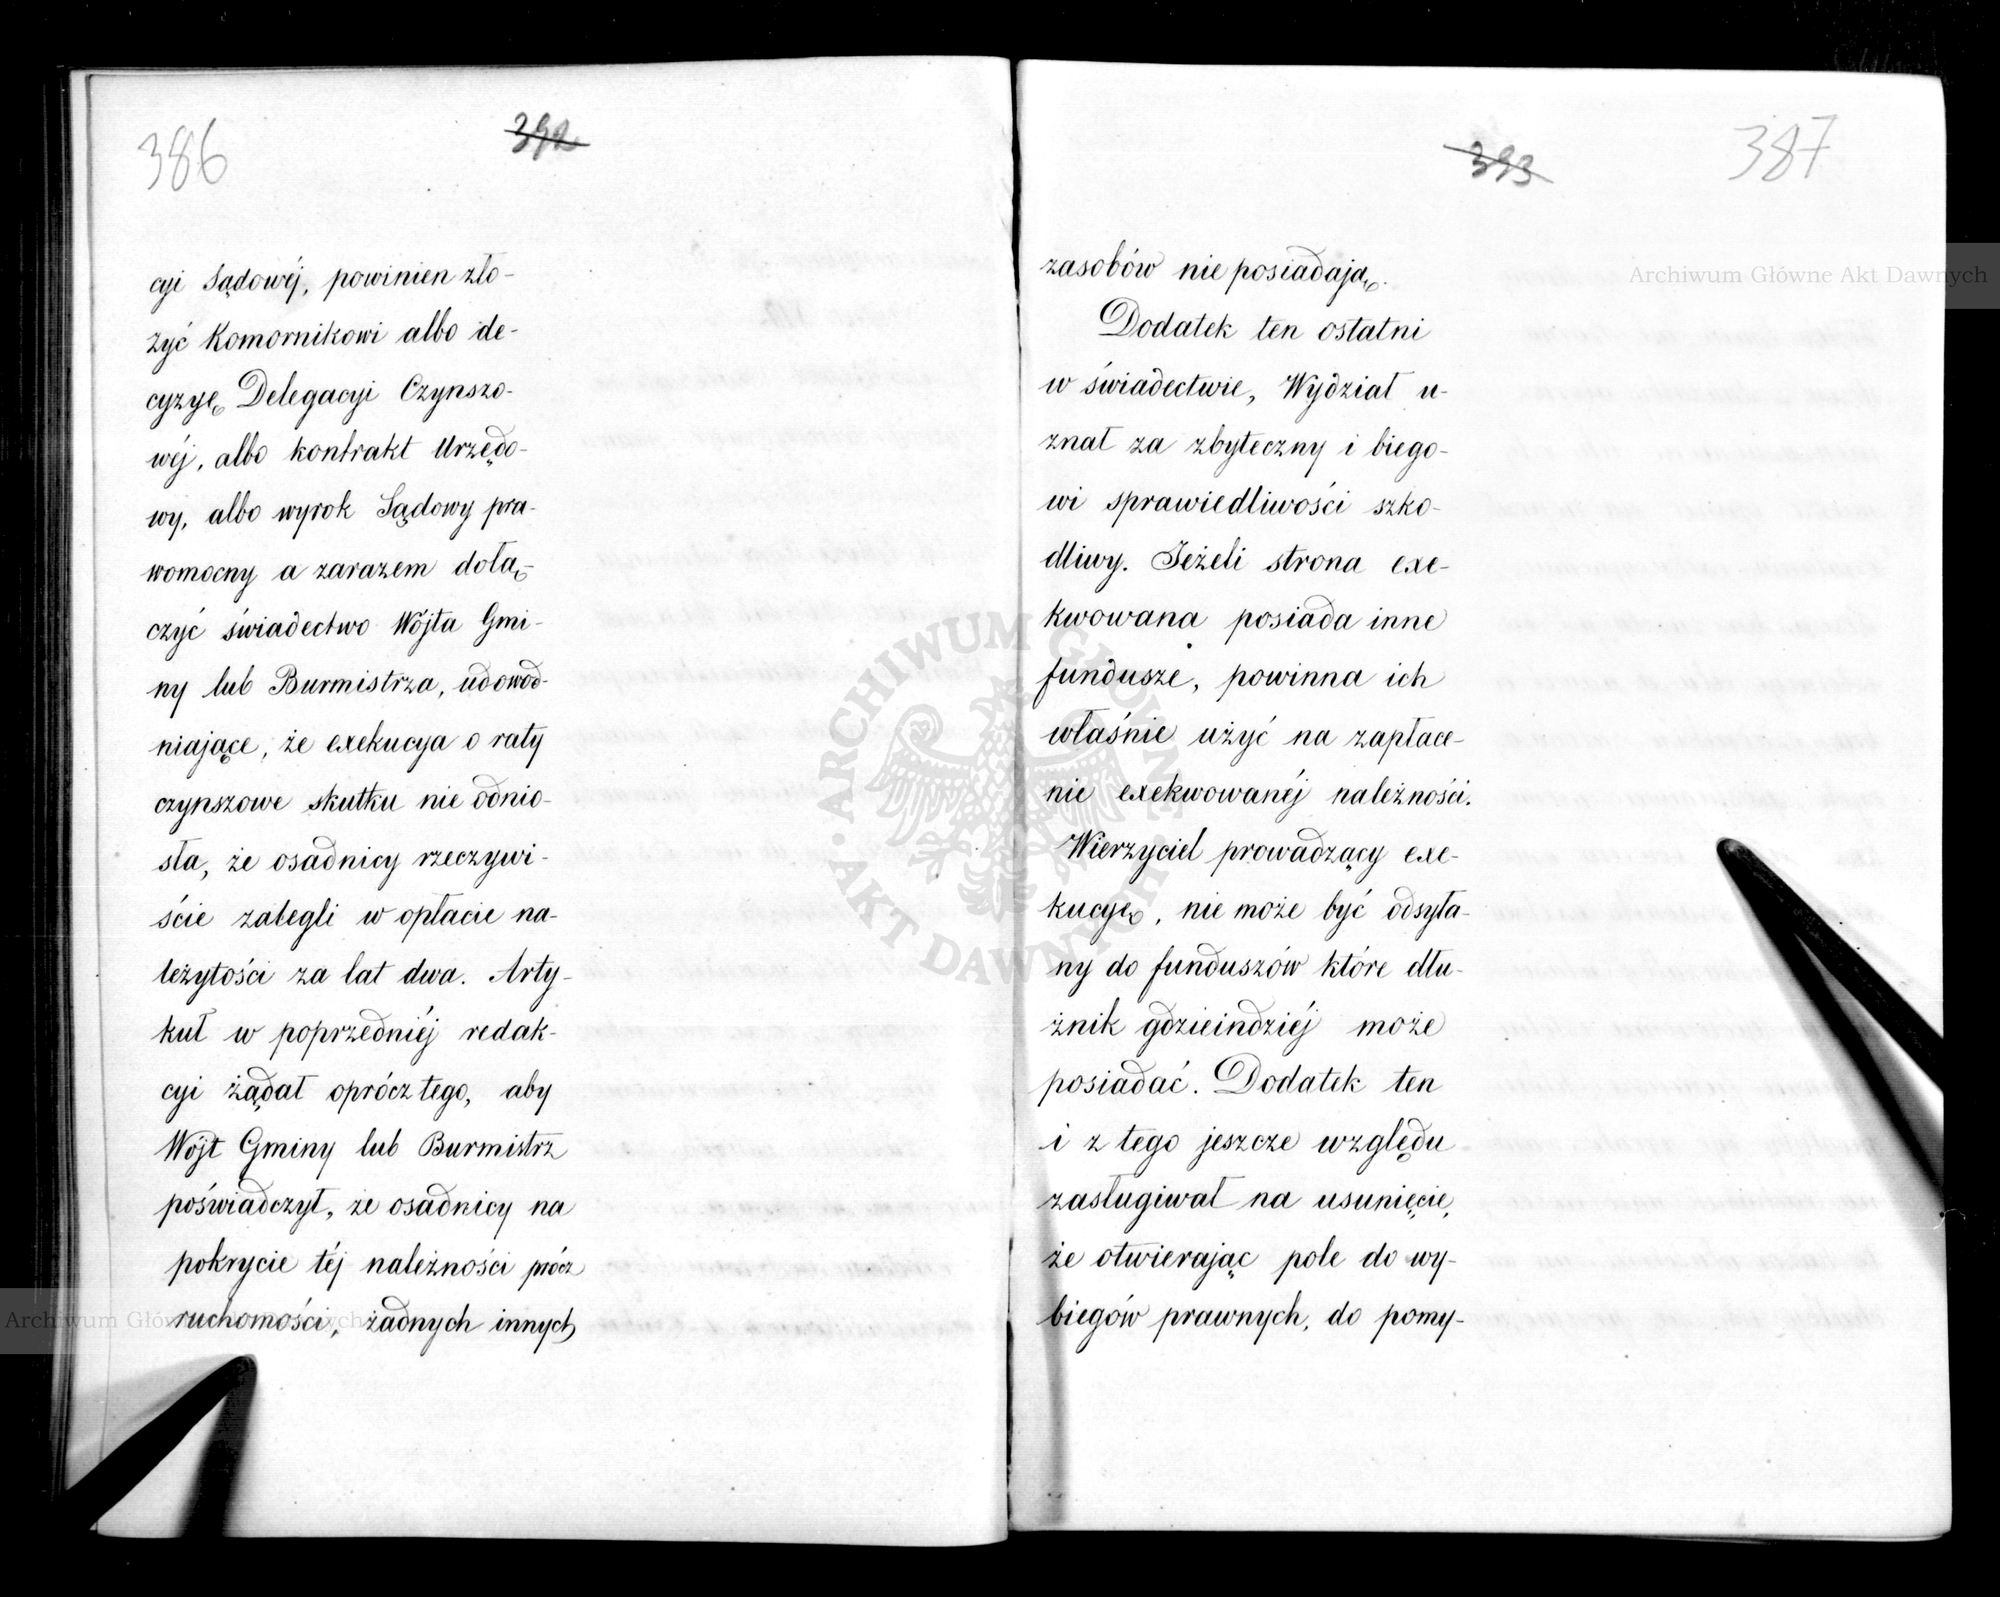 386
392
cyi Sądowéj, powinien zło-
żyć Komornikowi albo de-
cyzyę Delegacyi Czynszo-
wéj, albo kontrakt Urzędo-
wy, albo wyrok Sądowy pra-
womocny a zarazem dołą-
czyć świadectwo Wójta Gmi-
ny lub Burmistrza, udowod-
niające, że exekucya o raty
czynszowe skutku nie odnio-
sła, że osadnicy rzeczywi-
ście zalegli w opłacie na-
leżytości za lat dwa. Arty-
kuł w poprzedniéj redak-
cyi żądał oprócz tego, aby
Wójt Gminy lub Burmistrz
poświadczył, że osadnicy na
pokrycie téj należności prócz
ruchomości, żadnych innych
393
387
zasobów nie posiadają.
Dodatek ten ostatni
w świadectwie, Wydział u-
znał za zbyteczny i biego-
wi sprawiedliwości szko-
dliwy. Jeżeli strona exe-
kwowana posiada inne
fundusze, powinna ich
właśnie użyć na zapłace-
nie exekwowanéj należności.
Wierzyciel prowadzący exe-
kucyę, nie może być odsyła-
ny do funduszów które dłu-
żnik gdzieindziéj może
posiadać. Dodatek ten
i z tego jeszcze względu
zasługiwał na usunięcie,
że otwierając pole do wy-
biegów prawnych, do pomy-
Archiwum Główne Akt Dawnych
Archiwum Główne Akt Dawnych
ARCHIWUM GŁÓWNE · AKT DAWNYCH ·